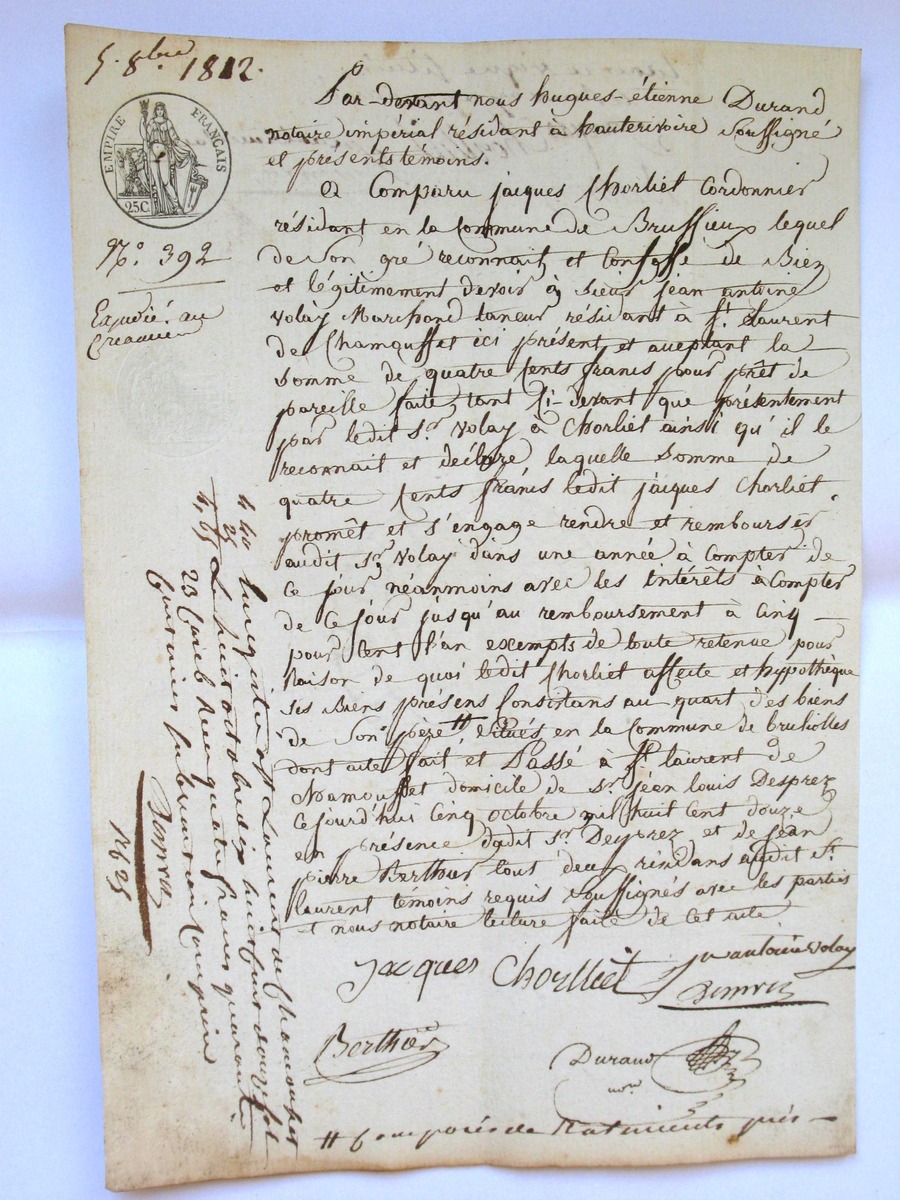 5. 8bre 1812.
EMPIRE FRANÇAIS
25C
No. 392
Expedié. au
Créancier
Par-devant nous hugues-étienne Durand
notaire impérial résidant à hauterivoire soussigné
et présents témoins.
a Comparu jacques Chorliet Cordonnier
résidant en la Commune de Brussieux lequel
de son gré reconnait et Confesse de Bien
et légitimement devoir à sieur jean antoine
volay Marchand taneur résidant à St. Laurent
de Chamousset ici présent et acceptant la
somme de quatre Cents francs pour prêt de
pareille faite, tant Ci-devant que présentement
par ledit Sr. Volay à Chorliet ainsi qu'il le
reconnait et déclare, laquelle somme de
quatre Cents francs ledit jacques Chorliet
promêt et s'engage rendre et rembourser
audit Sr. Volay dans une année à Compter de
Ce jour néanmoins avec les intérêts à Compter
de Ce jour jusqu'au remboursement à Cinq
pour Cent l'an exempts de toute retenue pour
Raison de quoi ledit Chorliet affecte et hypothèque
ses Biens présens Consistans au quart des biens
de son père # situés en la Commune de brulliolles
dont acte fait et Passé à St. laurent de
Chamousset domicile de Sr. jean louis Desprez
Cejourd'hui Cinq octobre mil huit Cent douze
en présence dudit Sr. Desprez et de jean
pierre Berthier tout deux résidans audit St.
laurent témoins requis soussignés avec les parties
et nous notaire lecture faite de Cet acte
jacques Chorlliet jn antoine Volay
Desprez
Berthier
Durand
nore
# Composés de Batiments prés
4 40 Enregistré à St Laurent de Chamousset
25 Le huit octobre dix huit cent douze fol
4, 65 23 Case reçu quatre francs quarante
Centimes subvention comprise
Desprez
1625